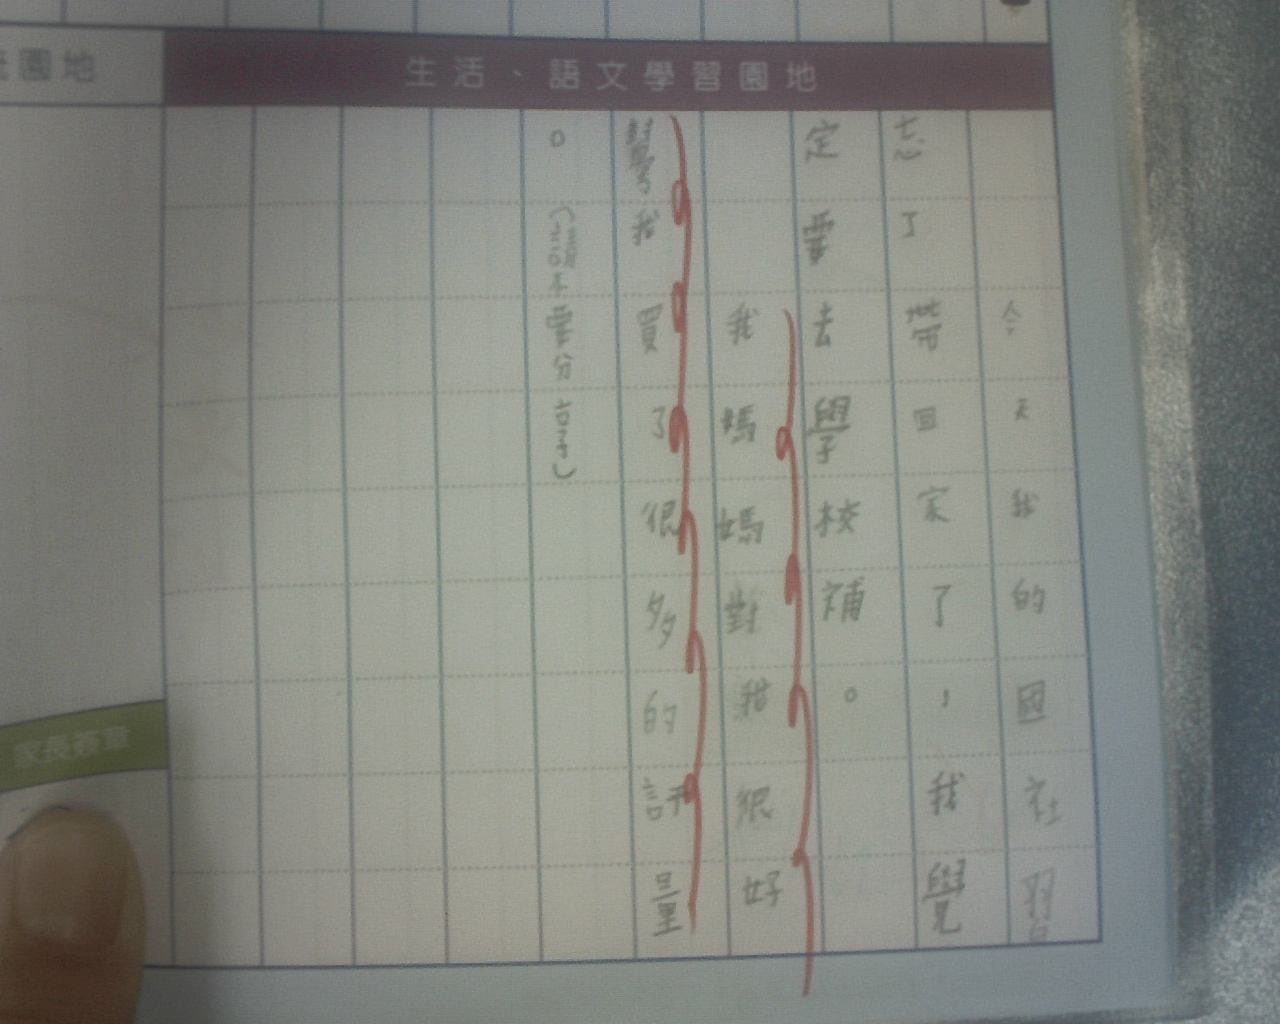 生活、語文學習園地
今天我的國社習
忘了帶回家了，我覺
定要去學校補。
我媽媽對我很好
我買了很多的評量
。（請不要分享）
園地
家長簽章